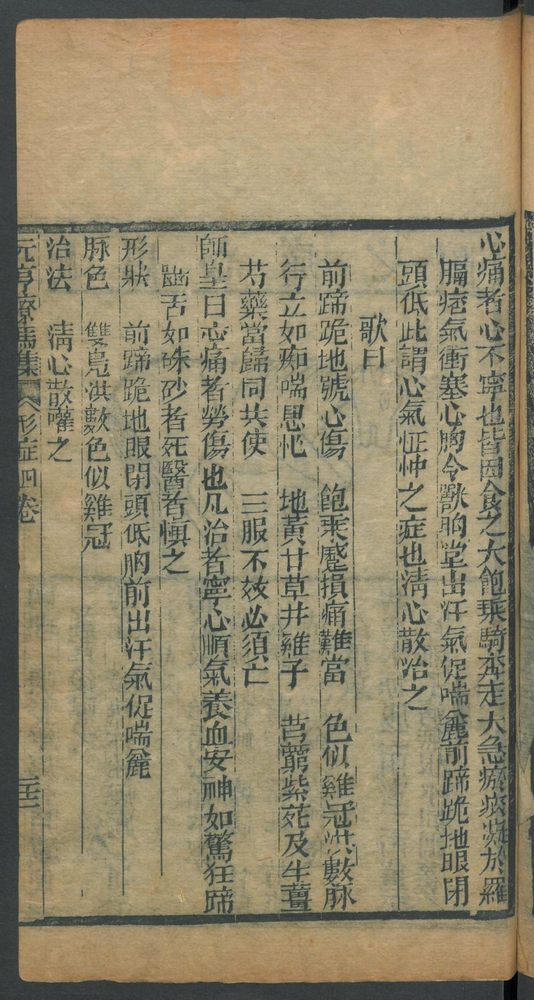 心痛者心不寧也皆因食之大飽乘騎奔走大急瘀痰凝於羅
膈痞氣衝塞心胸令獸胸堂出汗氣促喘麄前蹄跪地眼閉
頭低此謂心氣怔忡之症也清心散治之
歌曰
前蹄跪地號心傷 飽乘壓損痛難當 色似雞冠洪數脉
行立如痴喘思忙 地黄甘草井雞子 芎藭紫菀及生薑
芍藥當歸同共使 三服不效必須亡
師皇曰心痛者勞傷也凡治者寧心順氣養血安神如驚狂蹄
齒舌如硃砂者死醫者慎之
形狀 前蹄跪地眼閉頭低胸前出汗氣促喘麄
脉色 雙鳧洪數色似雞冠
治法 清心散嚾之
元亨療馬集 形症四卷